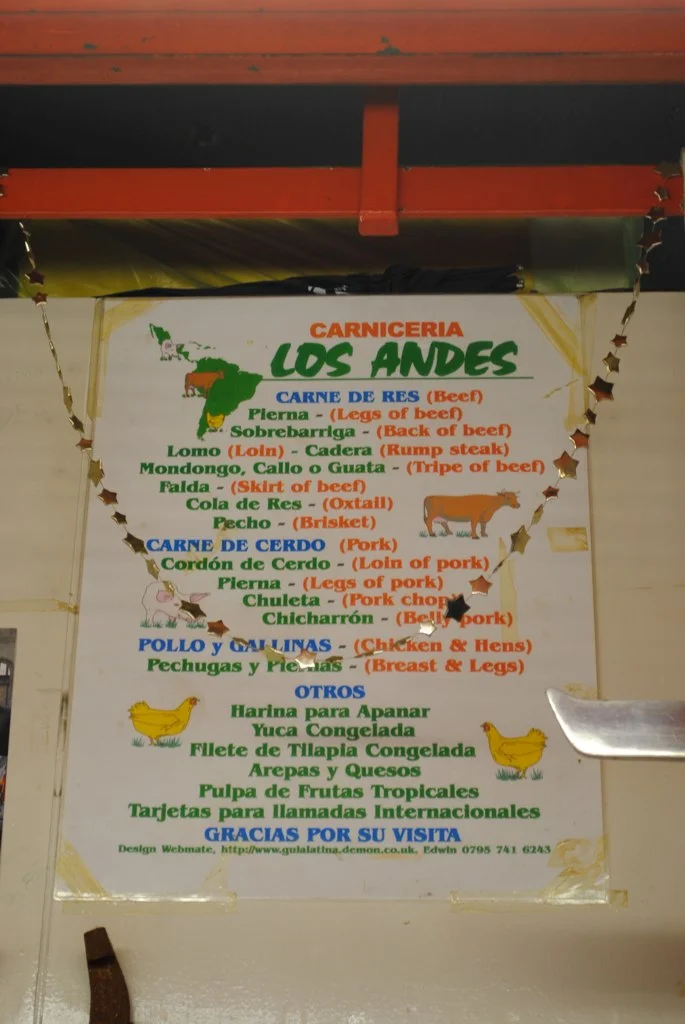 CARNICERIA
LOS ANDES
CARNE DE RES (Beef)
Pierna - (Legs of beef)
Sobrebarriga - (Back of beef)
Lomo (Loin) - Cadera (Rump steak)
Mondongo, Callo o Guata - (Tripe of beef)
Falda - (Skirt of beef)
Cola de Res - (Oxtail)
Pecho - (Brisket)
CARNE DE CERDO (Pork)
Cordón de Cerdo - (Loin of pork)
Pierna - (Legs of pork)
Chuleta - (Pork chop
Chicharrón - (Belly pork)
POLLO y GALLINAS - (Chicken & Hens)
Pechugas y Piernas - (Breast & Legs)
OTROS
Harina para Apanar
Yuca Congelada
Filete de Tilapia Congelada
Arepas y Quesos
Pulpa de Frutas Tropicales
Tarjetas para llamadas Internacionales
GRACIAS POR SU VISITA
Design Webmate, http://www.guialatina.demon.co.uk. Edwin 0795 741 6243